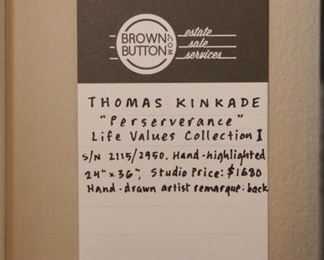 BROWN
BUTTON
.COM
estate
sale
services
THOMAS KINKADE
"Perserverance"
Life Values Collection I
S/N 2115/2950. Hand-highlighted
24" x 36", Studio Price: $1680
Hand-drawn artist remarque: back